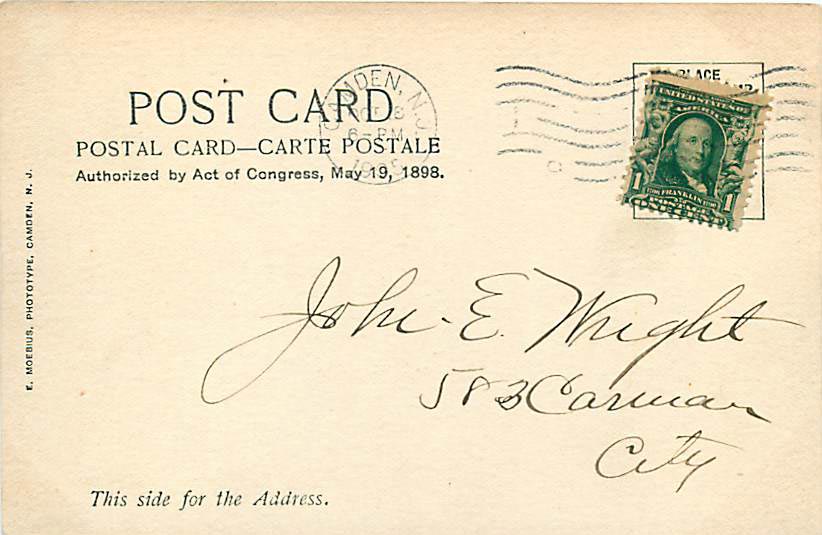 POST CARD
POSTAL CARD—CARTE POSTALE
Authorized by Act of Congress, May 19, 1898.
CAMDEN, N.J.
6-PM
PLACE
UNITED STATES OF
AMERICA
1 FRANKLIN 1
POSTAGE
ONE CENT
E. MOEBIUS, PHOTOTYPE, CAMDEN, N. J.
John E. Wright
583 Carman
City
This side for the Address.